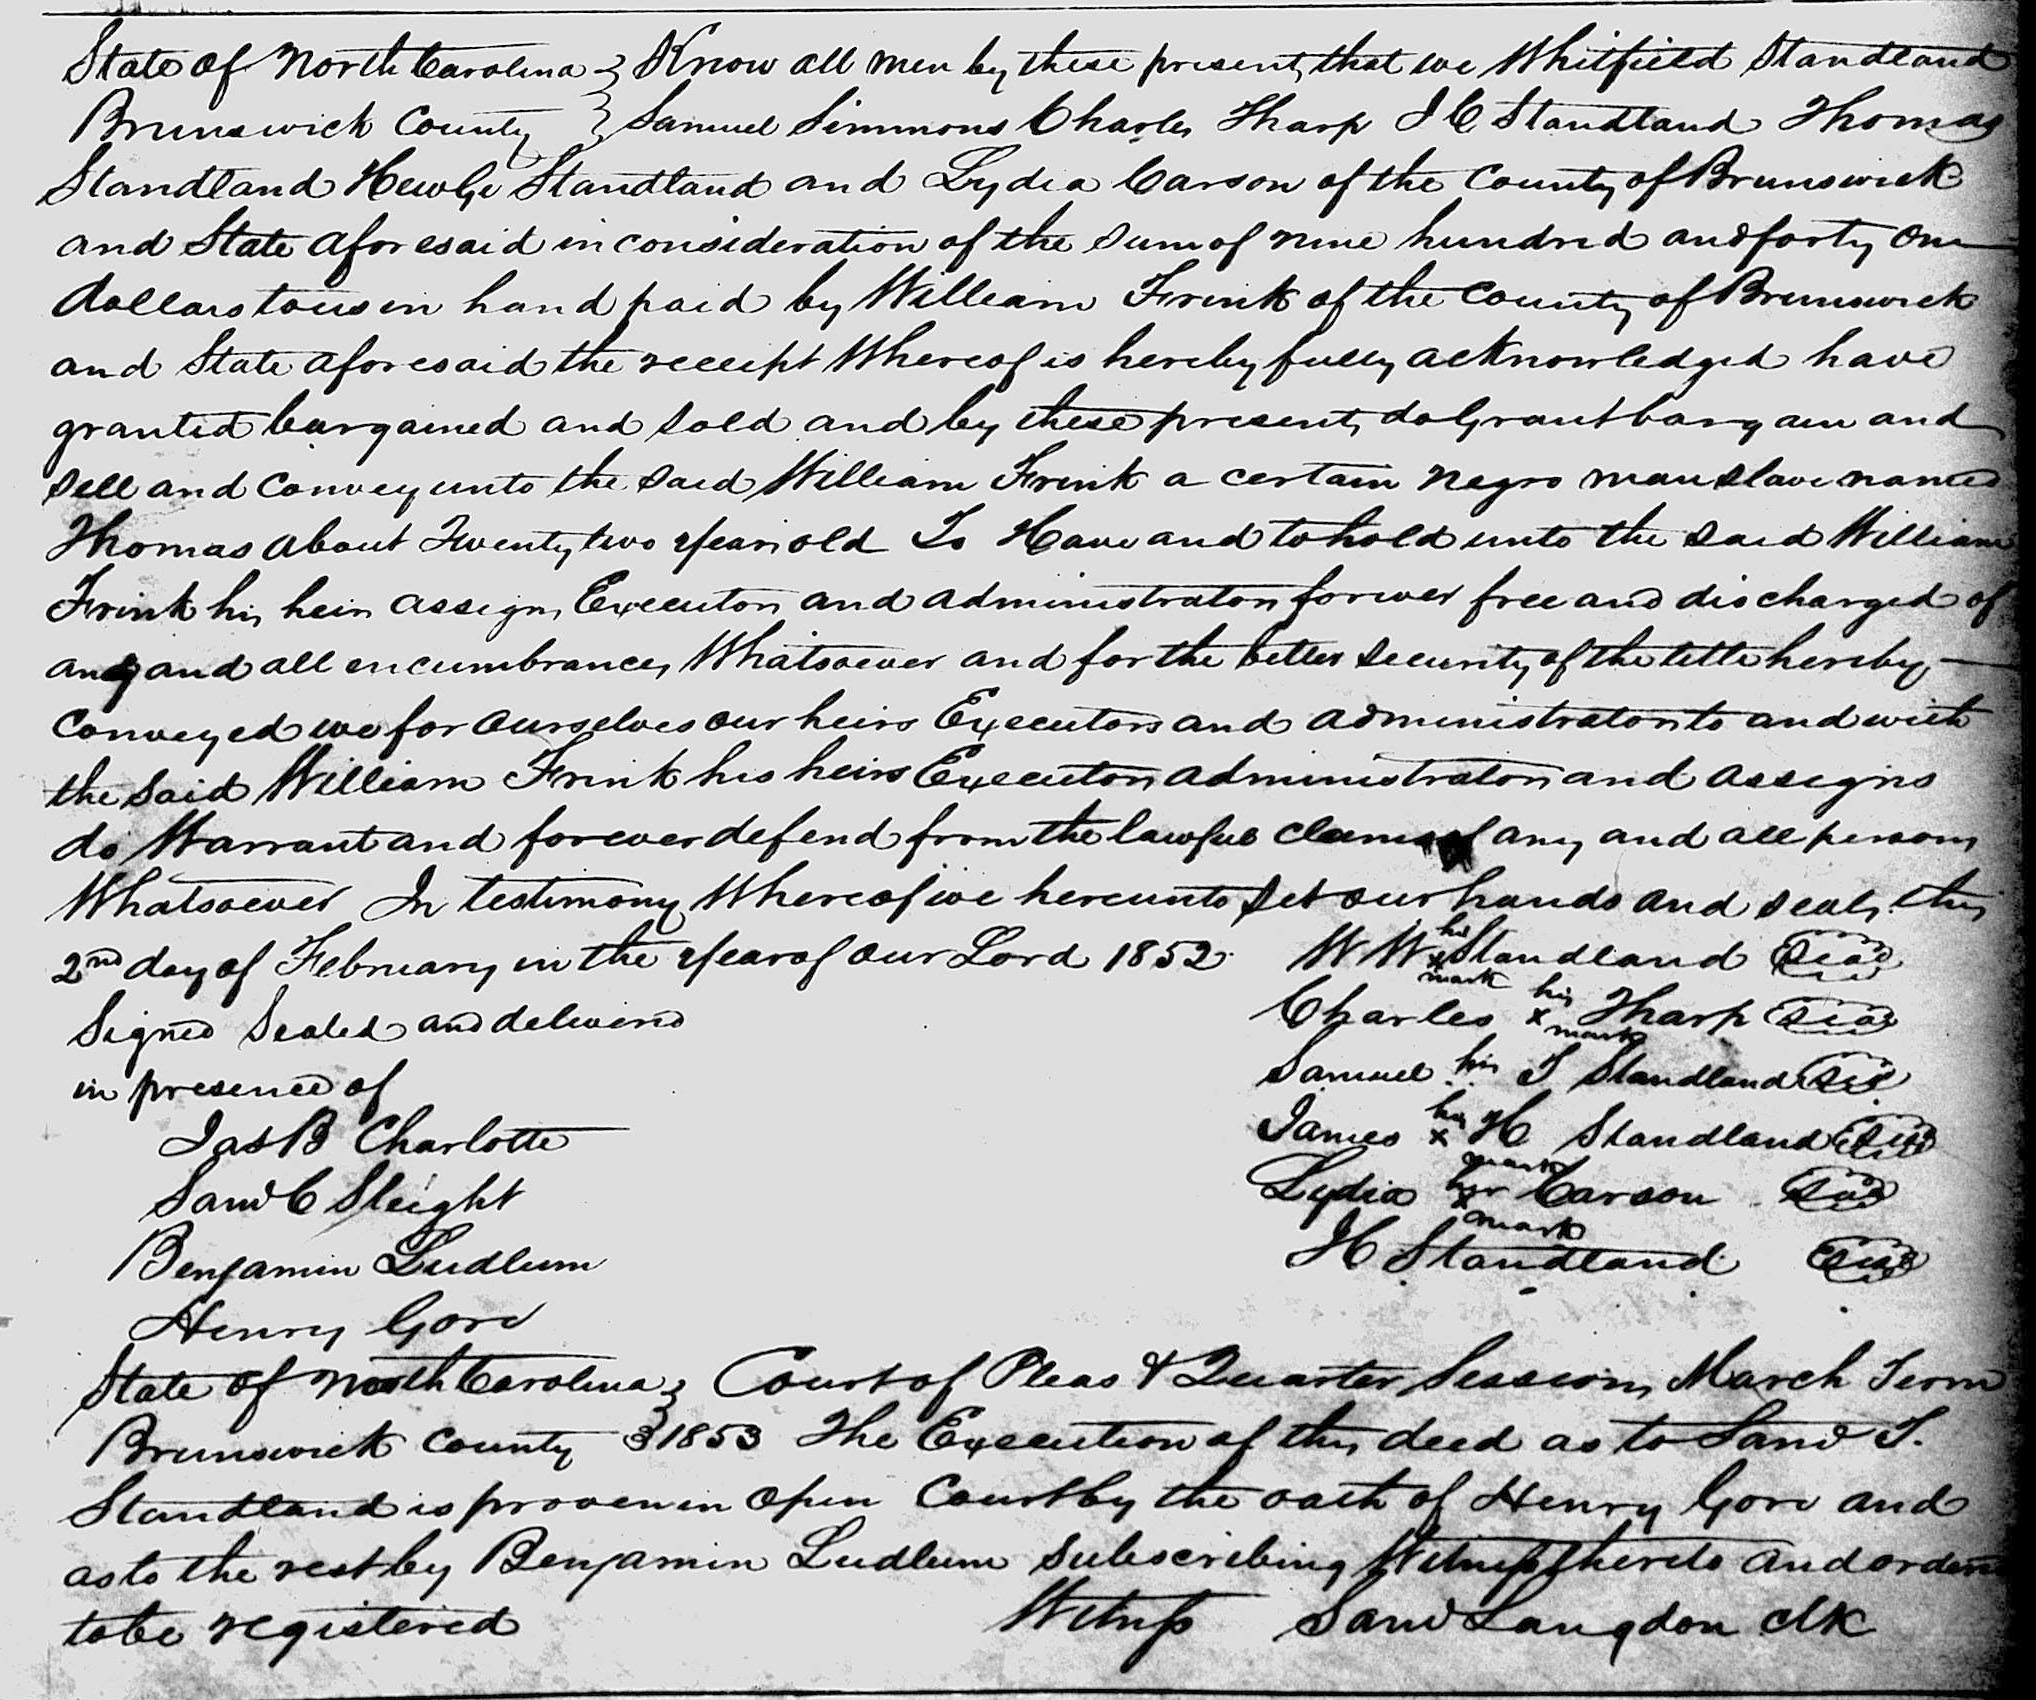 State of North Carolina } Know all men by these presents that we Whitfield Standland
Brunswick County } Samuel Simmons Charles Tharp J C Standland Thomas
Standland Standland and Lydia Carson of the County of Brunswick
and State aforesaid in consideration of the sum of nine hundred and forty one
dollars to us in hand paid by William Frink of the County of Brunswick
and State aforesaid the receipt Whereof is hereby fully acknowledged have
granted bargained and sold and by these presents do Grant bargain and
sell and convey unto the said William Frink a certain negro man slave named
Thomas about Twenty two years old To Have and to hold unto the said William
Frink his heirs assigns Executors and administrators forever free and discharged of
any and all encumbrances Whatsoever and for the better security of the title hereby
conveyed we for ourselves our heirs Executors and administrators to and with
the said William Frink his heirs Executors administrators and assigns
do Warrant and forever defend from the lawful claims of any and all persons
Whatsoever In testimony Whereof we hereunto set our hands and seals this
2nd day of February in the year of our Lord 1852. W W his x mark Standland Seal
Signed Sealed and delivered Charles his x mark Tharp Seal
in presence of Samuel his T Standland Seal
Jas B Charlotte James his x mark H Standland Seal
Saml C Sleight Lydia her x mark Carson Seal
Benjamin Ludlum H Standland Seal
Henry Gore
State of North Carolina } Court of Pleas & Quarter Sessions March Term
Brunswick County } 1853 The Execution of this deed as to Saml T.
Standland is proven in open Court by the oath of Henry Gore and
as to the rest by Benjamin Ludlum subscribing Witness thereto and ordered
to be registered Witness Saml Langdon Clk